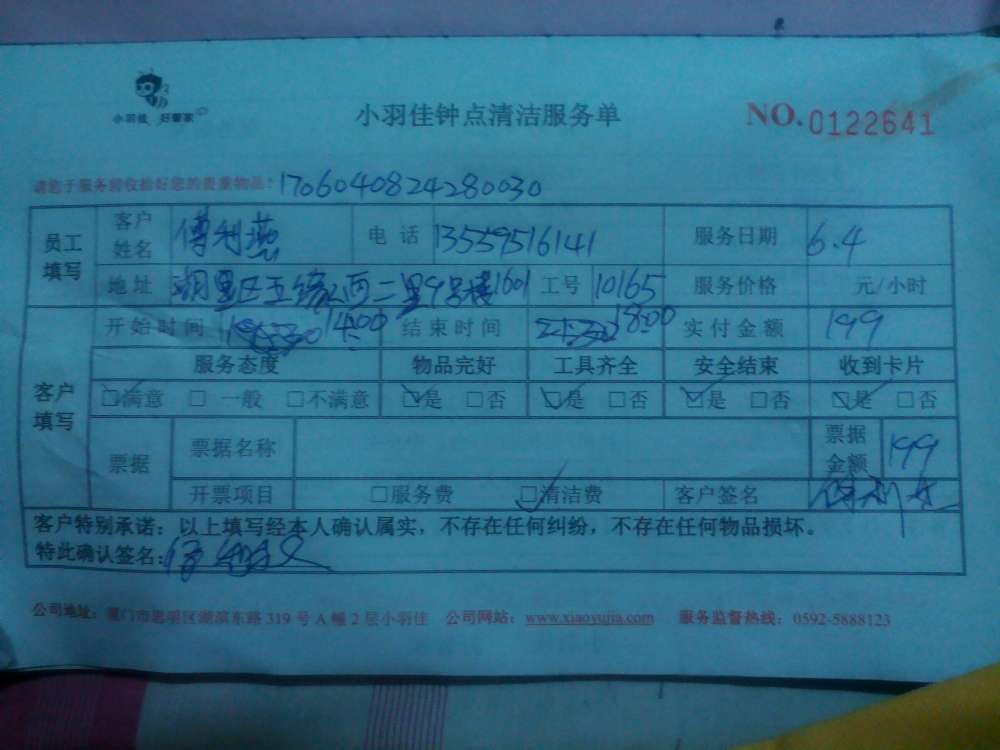 小羽佳 好管家
小羽佳钟点清洁服务单
NO.0122641
请您于服务前收拾好您的贵重物品! 1706040824280030
员工填写 客户姓名 傅利燕 电话 13559516141 服务日期 6.4
地址 湖里区五缘西二里9号楼1601 工号 10165 服务价格 元/小时
开始时间 14:00 结束时间 18:00 实付金额 199
客户填写 服务态度 物品完好 工具齐全 安全结束 收到卡片
□满意 □一般 □不满意 □是 □否 □是 □否 □是 □否 □是 □否
票据 票据名称 票据金额 199
开票项目 □服务费 □清洁费 客户签名
客户特别承诺：以上填写经本人确认属实，不存在任何纠纷，不存在任何物品损坏。
特此确认签名：
公司地址：厦门市思明区湖滨东路319号A幢2层小羽佳 公司网站：www.xiaoyujia.com 服务监督热线：0592-5888123